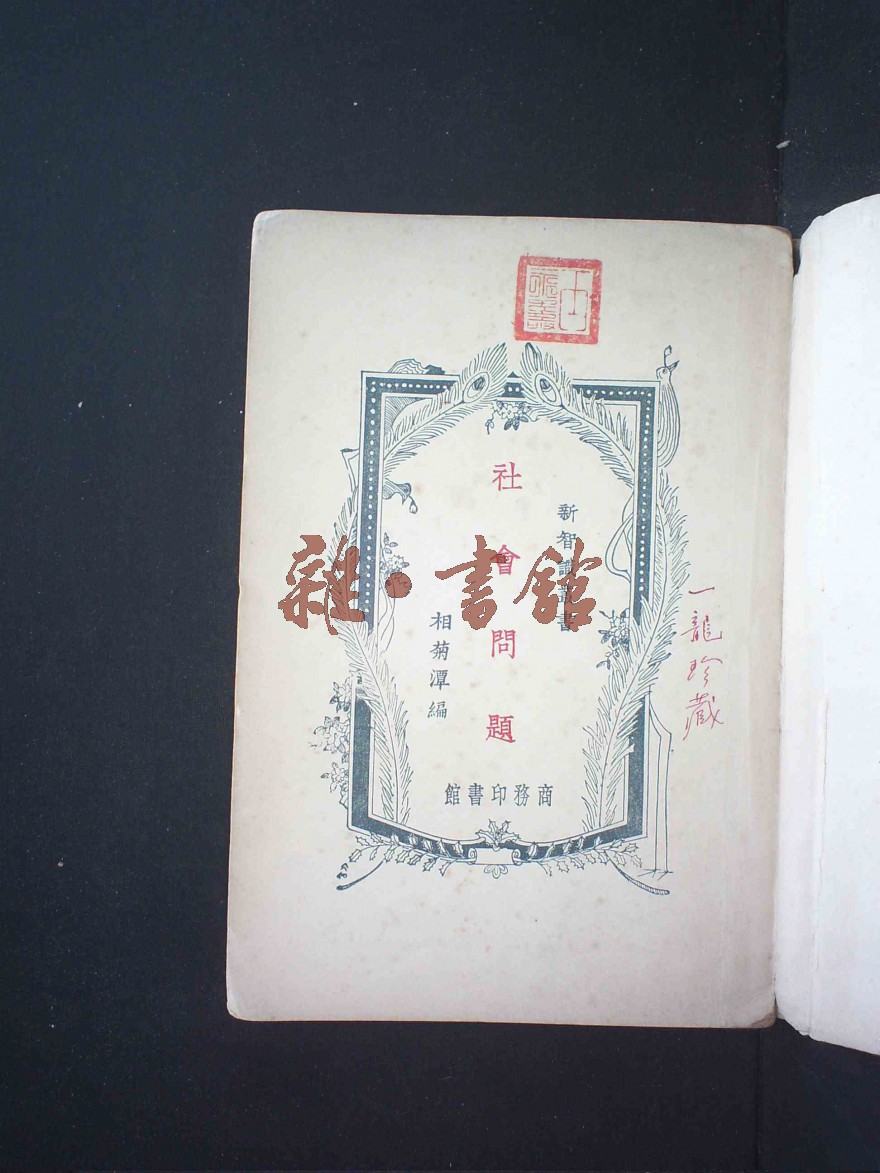 新智識叢書
社會問題
相菊潭編
商務印書館
一龍珍藏
雜·書館